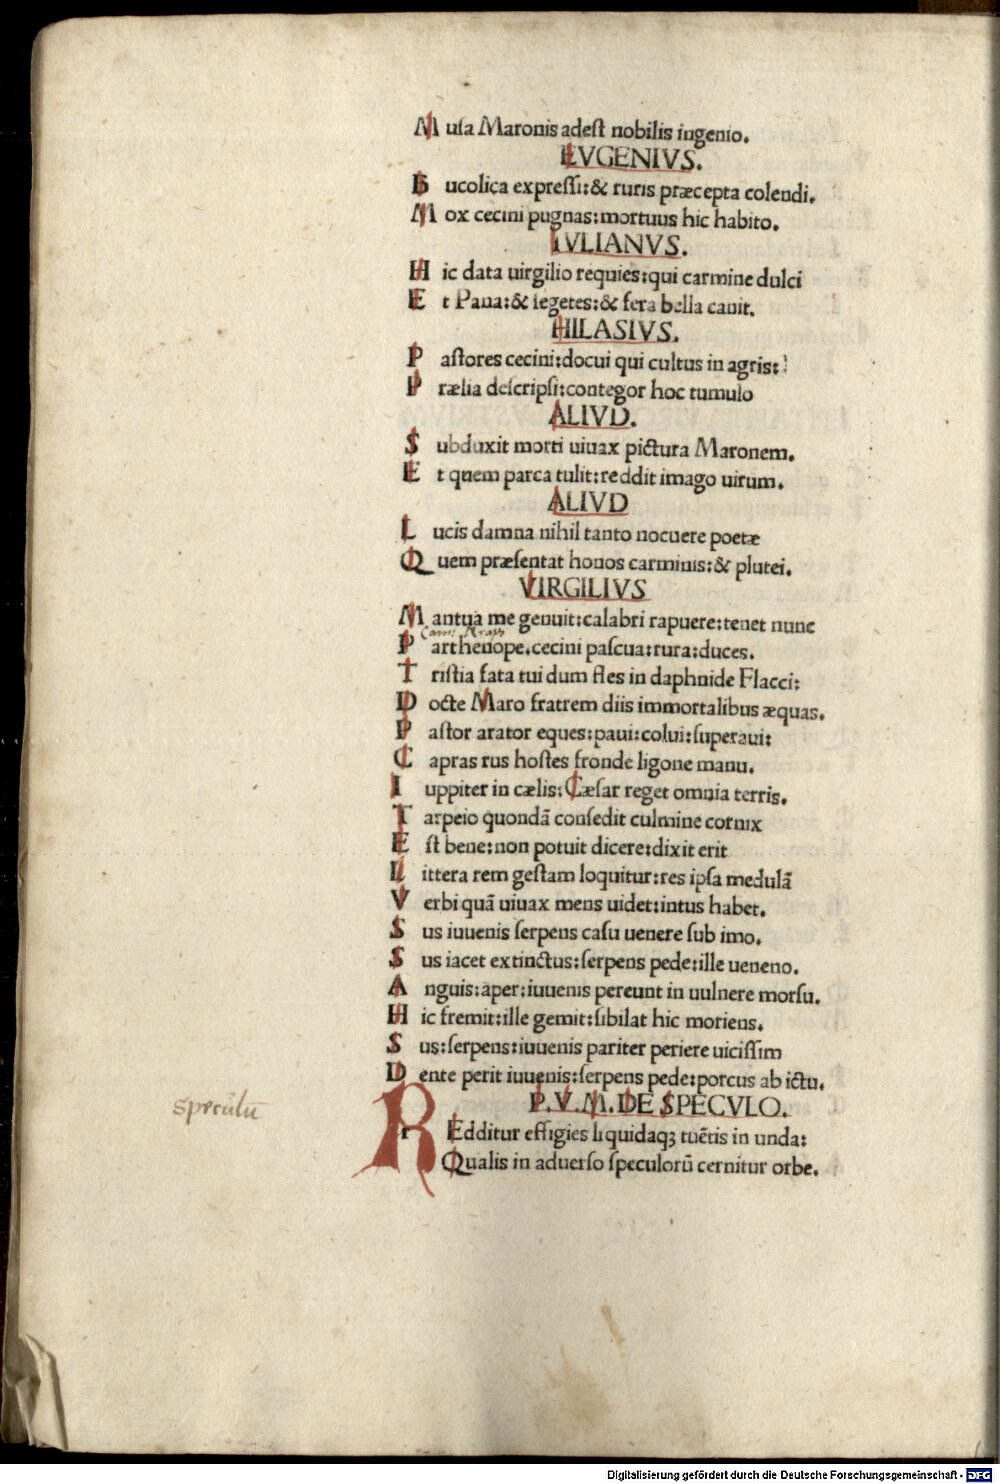 Musa Maronis adest nobilis ingenio.
EVGENIVS.
Bucolica expressi:& ruris præcepta colendi.
Mox cecini pugnas:mortuus hic habito.
IVLIANVS.
Hic data uirgilio requies:qui carmine dulci
Et Pana:& segetes:& fera bella canit.
HILASIVS.
Pastores cecini:docui qui cultus in agris:
Prælia descripsi:contegor hoc tumulo
ALIVD.
Subduxit morti uiuax pictura Maronem.
Et quem parca tulit:reddit imago uirum.
ALIVD
Lucis damna nihil tanto nocuere poetæ
Quem præsentat honos carminis:& plutei.
VIRGILIVS
Mantua me genuit:calabri rapuere:tenet nunc
Parthenope.cecini pascua:rura:duces.
Tristia fata tui dum fles in daphnide Flacci:
Docte Maro fratrem diis immortalibus æquas.
Pastor arator eques:paui:colui:superaui:
Capras rus hostes fronde ligone manu.
Iuppiter in cælis:Cæsar reget omnia terris.
Tarpeio quondã consedit culmine cornix
Est bene:non potuit dicere:dixit erit
Littera rem gestam loquitur:res ipsa medulã
Verbi quã uiuax mens uidet:intus habet.
Sus iuuenis serpens casu uenere sub imo.
Sus iacet extinctus:serpens pede:ille ueneno.
Anguis:aper:iuuenis pereunt in uulnere morsu.
Hic fremit:ille gemit:sibilat hic moriens.
Sus:serpens:iuuenis pariter periere uicissim
Dente perit iuuenis:serpens pede:porcus ab ictu.
speculũ
P.V.M.DE SPECVLO.
REdditur effigies liquidaqꝫ tuẽtis in unda:
Qualis in aduerso speculorũ cernitur orbe.
Digitalisierung gefördert durch die Deutsche Forschungsgemeinschaft - DFG